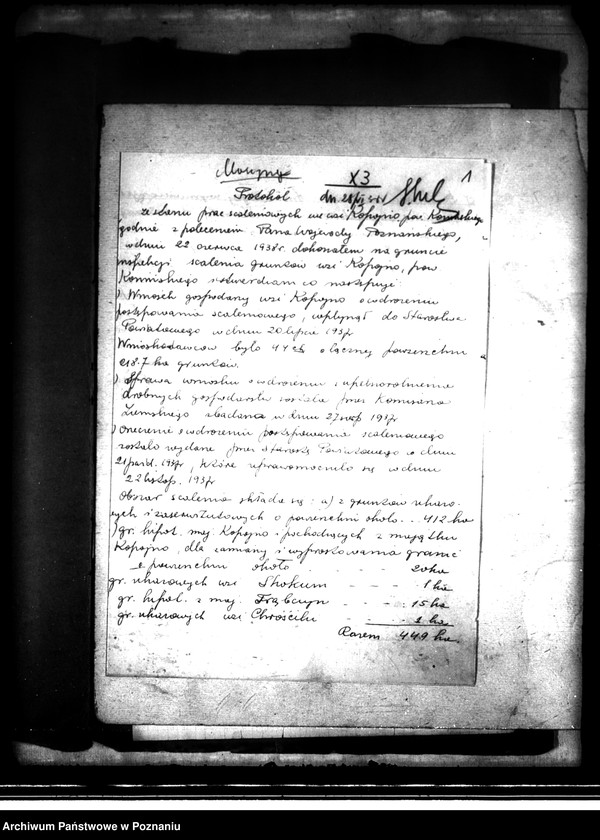 X3 1
Protokół dn.
ze stanu prac scaleniowych we wsi Kopojno, pow. Konińskiego
godnie z poleceniem Pana Wojewody Poznańskiego,
w dniu 22 czerwca 1938 r. dokonałem na gruncie
inspekcji scalenia gruntów wsi Kopojno, pow.
Konińskiego i stwierdzam co następuje:
) Wniosek gospodarzy wsi Kopojno o wdrożeniu
postępowania scaleniowego, wpłynął do Starostwa
Powiatowego w dniu 20 lipca 1937
Wnioskodawców było 44 o łącznej powierzchni
218.7 ha gruntów.
) Sprawa wniosku o wdrożeniu i upełnorolnienia
drobnych gospodarstw została przez Komisarza
Ziemskiego zbadana w dniu 27 1937
) Orzeczenie o wdrożeniu postępowania scaleniowego
zostało wydane przez Starostę Powiatowego w dniu
21 paźd. 1937, które uprawomocniło się w dniu
22 listop. 1937
Obszar scalenia składa się: a) z gruntów ukazo-
wych i zaserwitutowych o powierzchni około .. 412 ha
) gr. hipot. maj. Kopojno i pochodzących z majątku
Kopojno, dla zamiany i wyprostowania granic
o powierzchni około 20 ha
gr. ukazowych wsi Skokum - - - 1 ha
gr. hipot. z maj. Trąbczyn - - - 15 ha
gr. ukazowych wsi 1 ha
Razem 449 ha
Archiwum Państwowe w Poznaniu